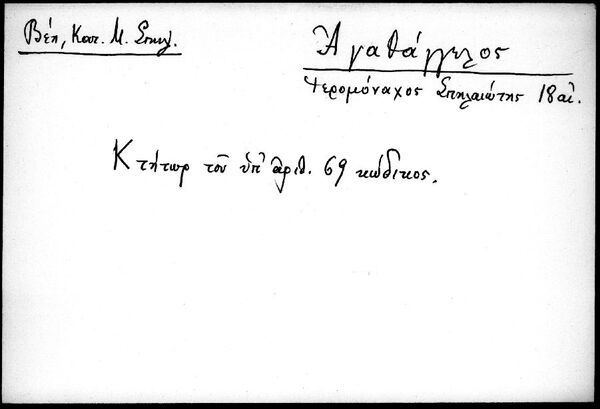 Βέη, Κατ. Μ. Σπηλ.
Ἀγαθάγγελος
Ἱερομόναχος Σπηλαιώτης 18 αἰ.
Κτήτωρ τοῦ ὑπ' ἀριθ. 69 κώδικος.